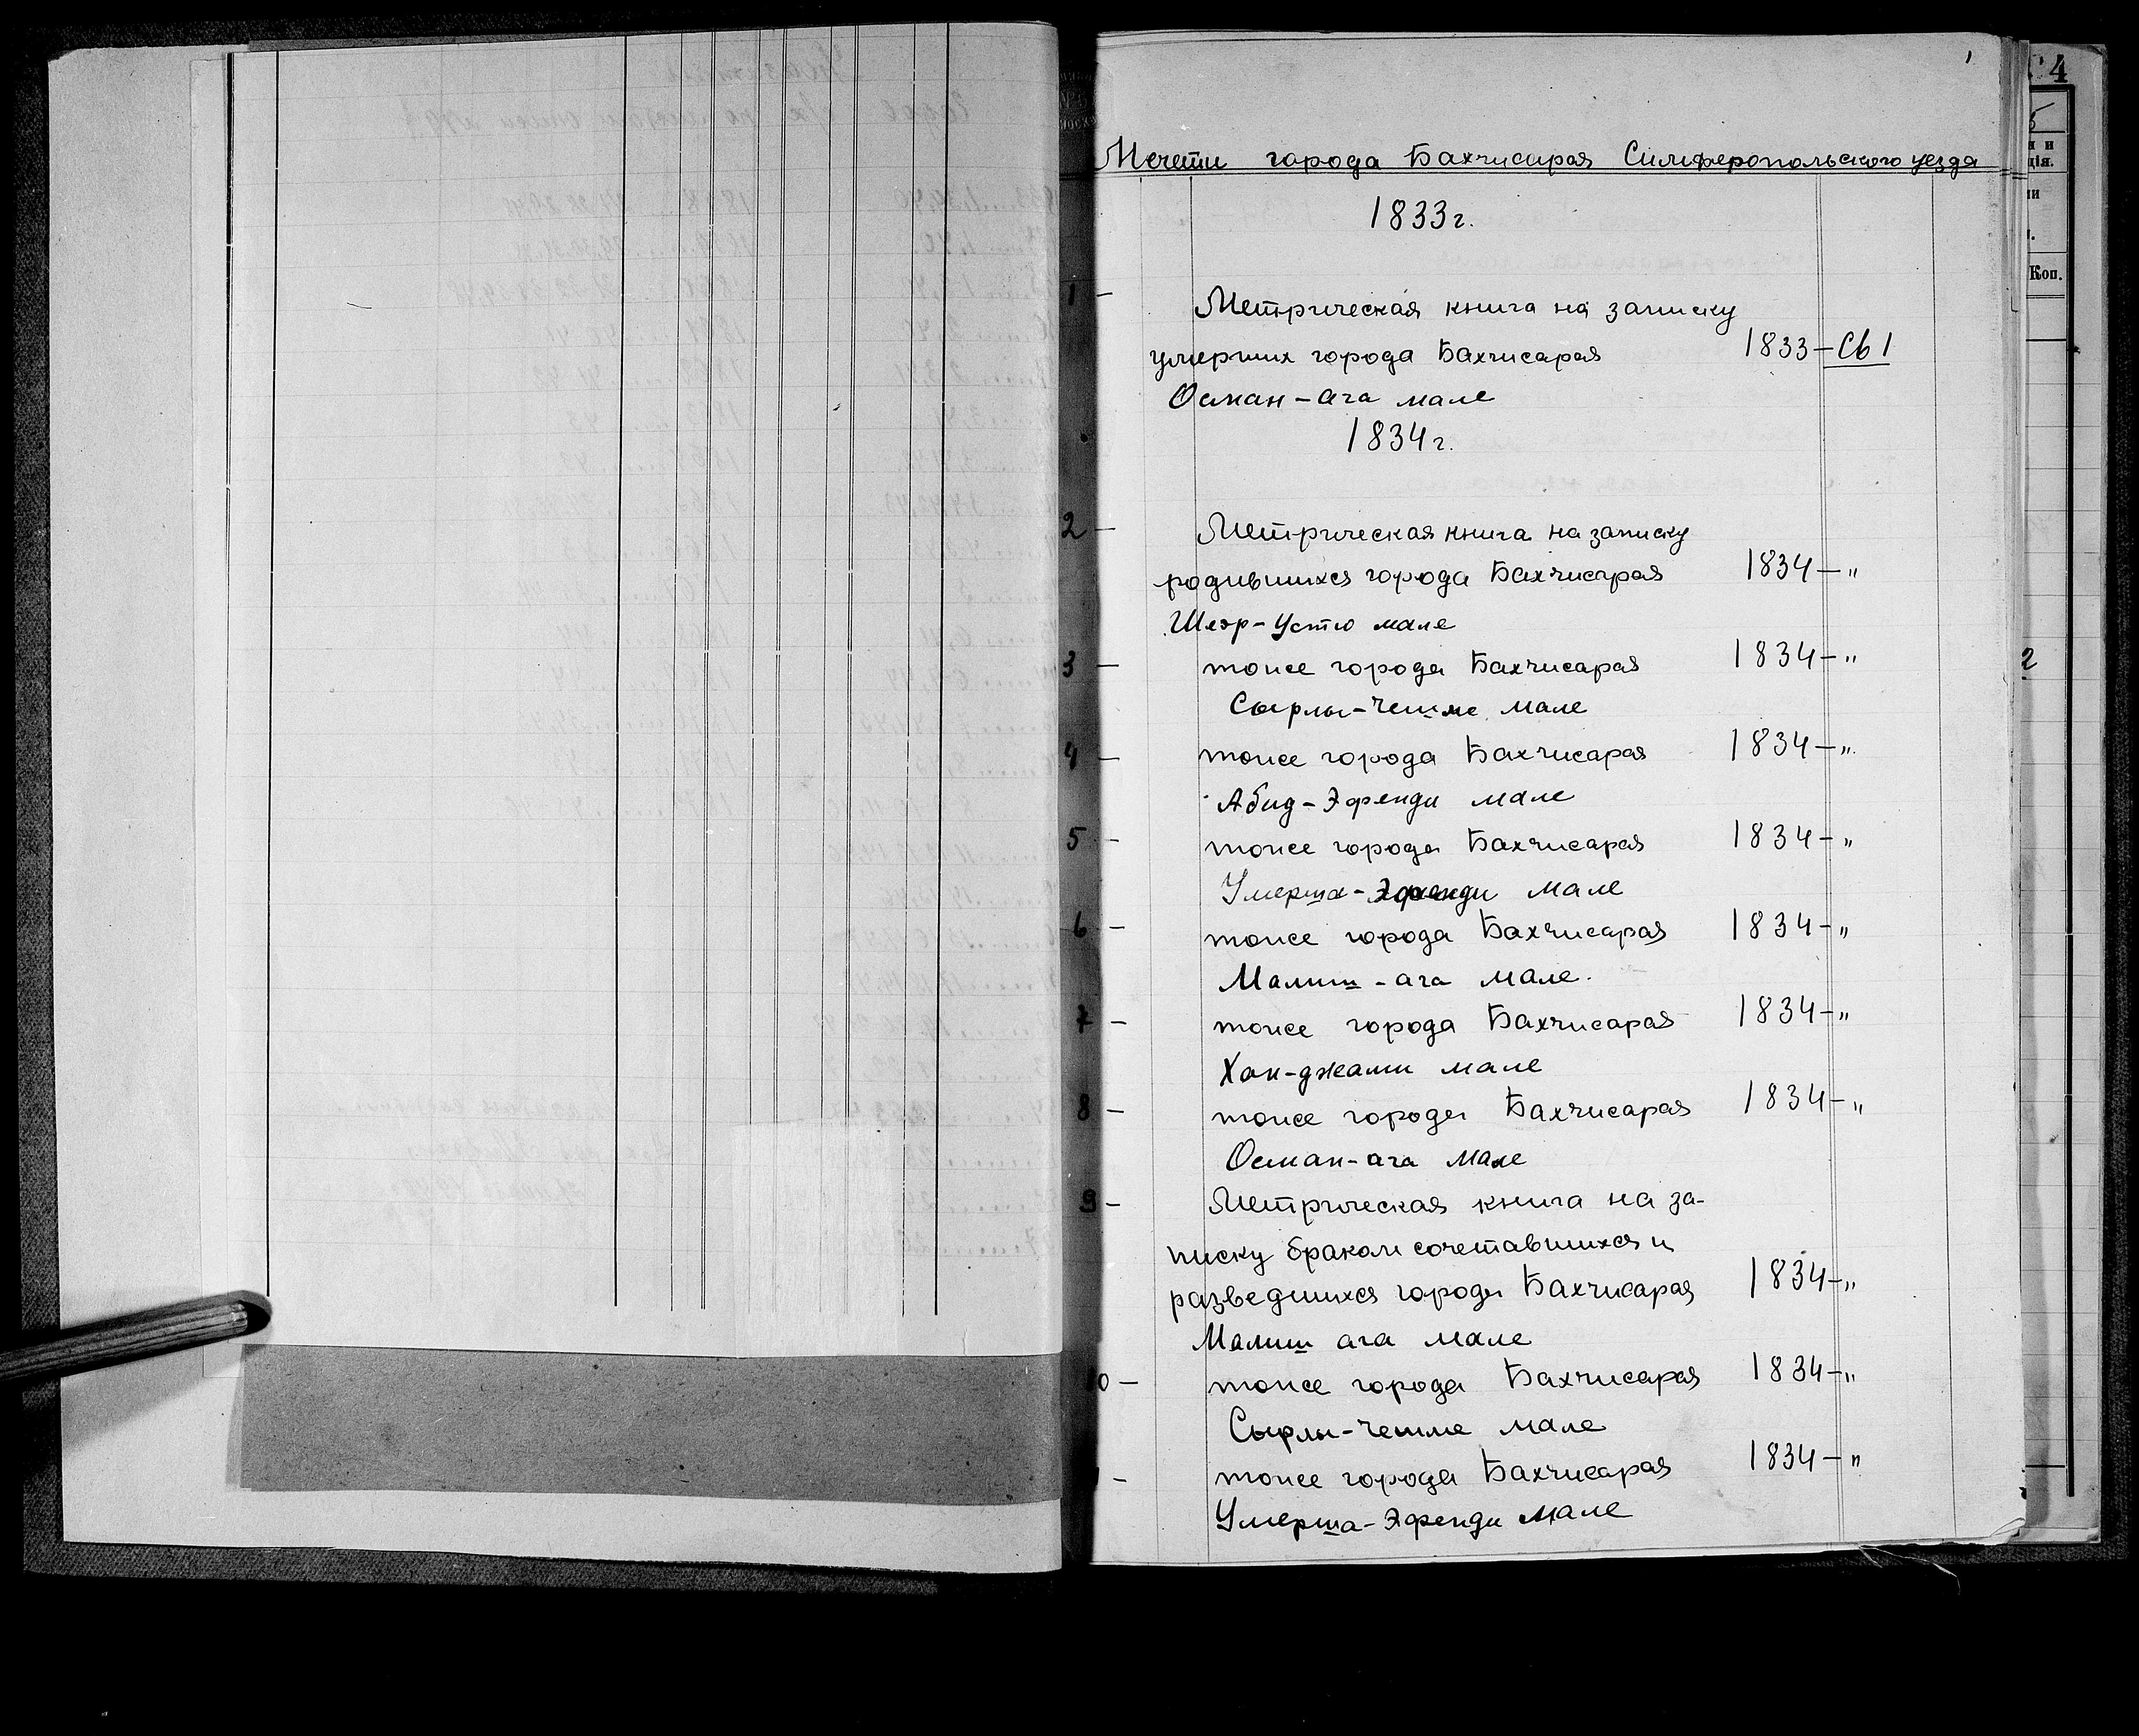 1
Мечети города Бахчисарая Симферопольского уезда
1833г.
1 - Метрическая книга на записку
умерших города Бахчисарая 1833 - Св 1
Осман-ага мале
1834г.
2 - Метрическая книга на записку
родившихся города Бахчисарая 1834 - "
Шеэр-Устю мале
3 - тоже города Бахчисарая 1834 - "
Сырлы-Чешме мале
4 - тоже города Бахчисарая 1834 - "
Абид-Эфенди мале
5 - тоже города Бахчисарая 1834 - "
Умерша-Эфенди мале
6 - тоже города Бахчисарая 1834 - "
Малиш-ага мале.
7 - тоже города Бахчисарая 1834 - "
Хан-джами мале
8 - тоже города Бахчисарая 1834 - "
Осман-ага мале
9 - Метрическая книга на за-
писку браком сочетавшихся и
разведшихся города Бахчисарая 1834 - "
Малиш ага мале
10 - тоже города Бахчисарая 1834 - "
Сырлы-чешме мале
- тоже города Бахчисарая 1834 - "
Умерша-Эфенди мале
4
Коп.
2